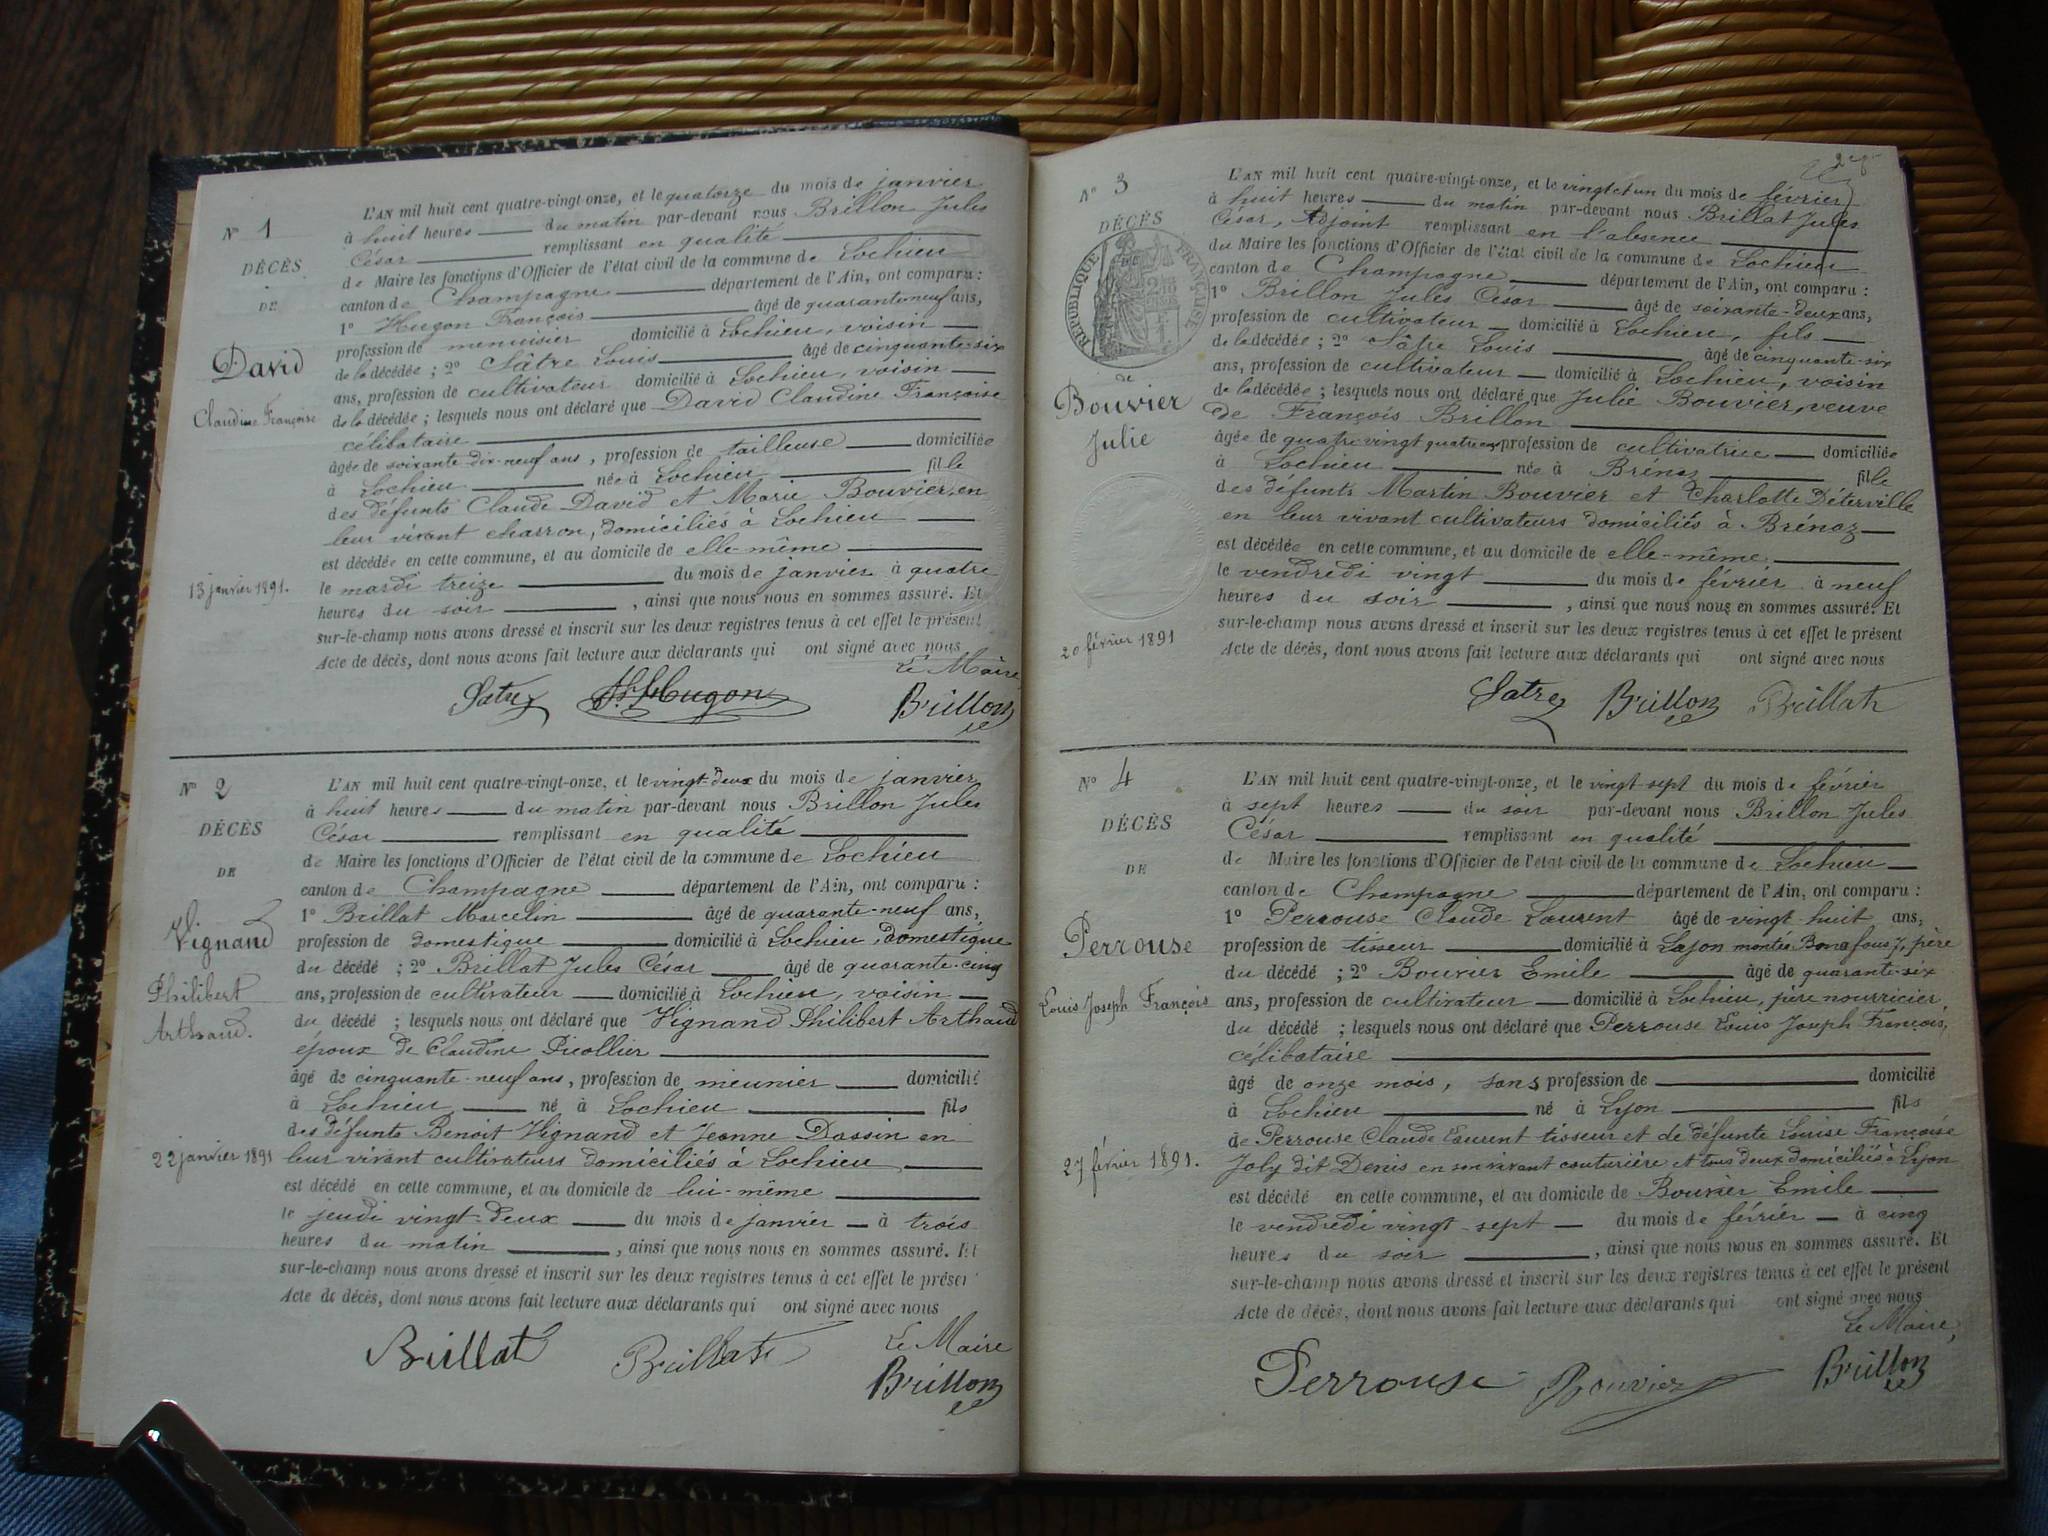 N° 1
DÉCÈS
DE
David
Claudine Françoise
13 janvier 1891.
L'AN mil huit cent quatre-vingt-onze, et le quatorze du mois de janvier
à huit heures du matin par-devant nous Brillon Jules
César remplissant en qualité
de Maire les fonctions d'Officier de l'état civil de la commune de Lochieu
canton de Champagne département de l'Ain, ont comparu :
1° Hugon François âgé de quarante neuf ans,
profession de menuisier domicilié à Lochieu, voisin
de la décédée ; 2° Sâtre Louis âgé de cinquante-six
ans, profession de cultivateur domicilié à Lochieu, voisin
de la décédée ; lesquels nous ont déclaré que David Claudine Françoise
célibataire
âgée de soixante-dix-neuf ans, profession de tailleuse domiciliée
à Lochieu née à Lochieu fille
des défunts Claude David et Marie Bouvier, en
leur vivant charron, domiciliés à Lochieu
est décédée en cette commune, et au domicile de elle-même
le mardi treize du mois de janvier à quatre
heures du soir , ainsi que nous nous en sommes assuré. Et
sur-le-champ nous avons dressé et inscrit sur les deux registres tenus à cet effet le présent
Acte de décès, dont nous avons fait lecture aux déclarants qui ont signé avec nous
Le Maire
Satre Hugon Brillon
N° 2
DÉCÈS
DE
Vignand
Philibert
Arthaud.
22 janvier 1891
L'AN mil huit cent quatre-vingt-onze, et le vingt-deux du mois de janvier
à huit heures du matin par-devant nous Brillon Jules
César remplissant en qualité
de Maire les fonctions d'Officier de l'état civil de la commune de Lochieu
canton de Champagne département de l'Ain, ont comparu :
1° Brillat Marcelin âgé de quarante-neuf ans,
profession de domestique domicilié à Lochieu, domestique
du décédé ; 2° Brillat Jules César âgé de quarante-cinq
ans, profession de cultivateur domicilié à Lochieu, voisin
du décédé ; lesquels nous ont déclaré que Vignand Philibert Arthaud
époux de Claudine Picollier
âgé de cinquante-neuf ans, profession de meunier domicilié
à Lochieu né à Lochieu fils
des défunts Benoit Vignand et Jeanne Dassin en
leur vivant cultivateurs domiciliés à Lochieu
est décédé en cette commune, et au domicile de lui-même
le jeudi vingt-deux du mois de janvier à trois
heures du matin , ainsi que nous nous en sommes assuré. Et
sur-le-champ nous avons dressé et inscrit sur les deux registres tenus à cet effet le présent
Acte de décès, dont nous avons fait lecture aux déclarants qui ont signé avec nous
Le Maire
Brillat Brillat Brillon
N° 3
DÉCÈS
RÉPUBLIQUE FRANÇAISE
de
Bouvier
Julie
20 février 1891
L'AN mil huit cent quatre-vingt-onze, et le vingt et un du mois de février
à huit heures du matin par-devant nous Brillat Jules
César, Adjoint remplissant en l'absence
du Maire les fonctions d'Officier de l'état civil de la commune de Lochieu
canton de Champagne département de l'Ain, ont comparu :
1° Brillon Jules César âgé de soixante-deux ans,
profession de cultivateur domicilié à Lochieu, fils
de la décédée ; 2° Sâtre Louis âgé de cinquante-six
ans, profession de cultivateur domicilié à Lochieu, voisin
de la décédée ; lesquels nous ont déclaré que Julie Bouvier, veuve
de François Brillon
âgée de quatre vingt quatre ans profession de cultivatrice domiciliée
à Lochieu née à Brénaz fille
des défunts Martin Bouvier et Charlotte Déterville
en leur vivant cultivateurs domiciliés à Brénaz
est décédée en cette commune, et au domicile de elle-même,
le vendredi vingt du mois de février à neuf
heures du soir , ainsi que nous nous en sommes assuré. Et
sur-le-champ nous avons dressé et inscrit sur les deux registres tenus à cet effet le présent
Acte de décès, dont nous avons fait lecture aux déclarants qui ont signé avec nous
Satre Brillon Brillat
N° 4
DÉCÈS
DE
Perrouse
Louis Joseph François
27 février 1891.
L'AN mil huit cent quatre-vingt-onze, et le vingt-sept du mois de février
à sept heures du soir par-devant nous Brillon Jules
César remplissant en qualité
de Maire les fonctions d'Officier de l'état civil de la commune de Lochieu
canton de Champagne département de l'Ain, ont comparu :
1° Perrouse Claude Laurent âgé de vingt-huit ans,
profession de tisseur domicilié à Lyon montée Bonafous 7, père
du décédé ; 2° Bouvier Emile âgé de quarante-six
ans, profession de cultivateur domicilié à Lochieu, père nourricier
du décédé ; lesquels nous ont déclaré que Perrouse Louis Joseph François,
célibataire
âgé de onze mois, sans profession de domicilié
à Lochieu né à Lyon fils
de Perrouse Claude Laurent tisseur et de défunte Louise Françoise
Joly dit Denis en son vivant couturière et tous deux domiciliés à Lyon
est décédé en cette commune, et au domicile de Bouvier Emile
le vendredi vingt-sept du mois de février à cinq
heures du soir , ainsi que nous nous en sommes assuré. Et
sur-le-champ nous avons dressé et inscrit sur les deux registres tenus à cet effet le présent
Acte de décès, dont nous avons fait lecture aux déclarants qui ont signé avec nous
Le Maire,
Perrouse Bouvier Brillon